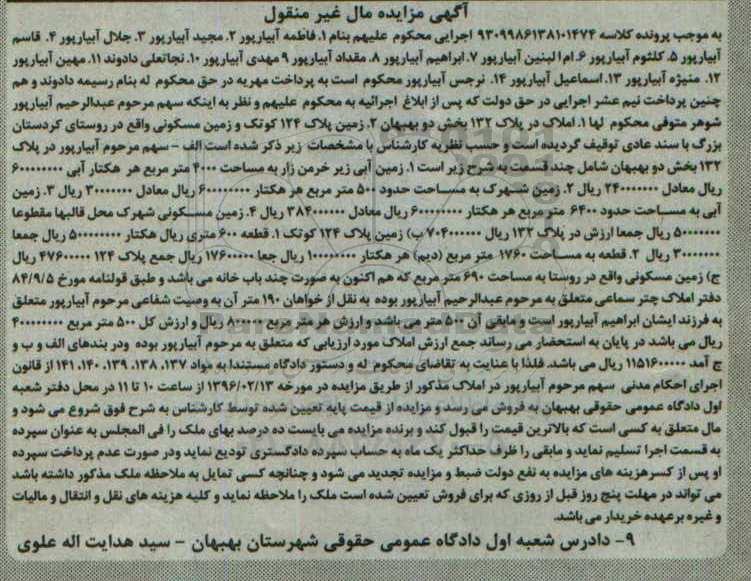 آگهی مزایده مال غیر منقول
به موجب پرونده کلاسه ۹۳۰۹۹۸۶۱۳۸۱۰۱۴۷۴ اجرایی محکوم علیهم بنام ۱. فاطمه آبیارپور ۲. مجید آبیارپور ۳. جلال آبیارپور ۴. قاسم
آبیارپور ۵. کلثوم آبیارپور ۶. ام البنین آبیارپور ۷. ابراهیم آبیارپور ۸. مقداد آبیارپور ۹ مهدی آبیارپور ۱۰. نجاتعلی دادوند ۱۱. مهین آبیارپور
۱۲. منیژه آبیارپور ۱۳. اسماعیل آبیارپور ۱۴. نرجس آبیارپور محکوم است به پرداخت مهریه در حق محکوم له بنام رسیمه دادوند و هم
چنین پرداخت نیم عشر اجرایی در حق دولت که پس از ابلاغ اجرائیه به محکوم علیهم و نظر به اینکه سهم مرحوم عبدالرحیم آبیارپور
شوهر متوفی محکوم لها ۱. املاک در پلاک ۱۳۲ بخش دو بهبهان ۲. زمین پلاک ۱۲۴ کوتک و زمین مسکونی واقع در روستای کردستان
بزرگ با سند عادی توقیف گردیده است و حسب نظریه کارشناس با مشخصات زیر ذکر شده است الف - سهم مرحوم آبیارپور در پلاک
۱۳۲ بخش دو بهبهان شامل چند قسمت به شرح زیر است ۱. زمین آبی زیر خرمن زار به مساحت ۴۰۰۰ متر مربع هر هکتار آبی ۶۰۰۰۰۰۰۰۰
ریال معادل ۲۴۰۰۰۰۰۰۰ ریال ۲. زمین شهرک به مساحت حدود ۵۰۰ متر مربع هر هکتار ۶۰۰۰۰۰۰۰۰ ریال معادل ۳۰۰۰۰۰۰۰ ریال ۳. زمین
آبی به مساحت حدود ۶۴۰۰ متر مربع هر هکتار ۶۰۰۰۰۰۰۰۰ ریال معادل ۳۸۴۰۰۰۰۰۰ ریال ۴. زمین مسکونی شهرک محل قالبها مقطوعا
۵۰۰۰۰۰۰۰ ریال جمعا ارزش در پلاک ۱۳۲ ریال ۷۰۴۰۰۰۰۰۰ ب) زمین پلاک ۱۲۴ کوتک ۱. قطعه ۶۰۰ متری ریال هکتار ۵۰۰۰۰۰۰۰۰ ریال جمعا
۳۰۰۰۰۰۰۰ ریال ۲. قطعه به مساحت ۱۷۶۰ متر مربع (دیم) هر هکتار ۱۰۰۰۰۰۰۰۰ ریال جعا ۱۷۶۰۰۰۰۰ ریال جمع پلاک ۱۲۴ ۴۷۶۰۰۰۰۰ ریال
ج) زمین مسکونی واقع در روستا به مساحت ۶۹۰ متر مربع که هم اکنون به صورت چند باب خانه می باشد و طبق قولنامه مورخ ۸۴/۹/۵
دفتر املاک چتر سماعی متعلق به مرحوم عبدالرحیم آبیارپور بوده به نقل از خواهان ۱۹۰ متر آن به وصیت شفاعی مرحوم آبیارپور متعلق
به فرزند ایشان ابراهیم آبیارپور است و مابقی آن ۵۰۰ متر می باشد و ارزش هر متر مربع ۸۰۰۰۰۰ ریال و ارزش کل ۵۰۰ متر مربع ۴۰۰۰۰۰۰۰۰
ریال می باشد در پایان به استحضار می رساند جمع ارزش املاک مورد ارزیابی که متعلق به مرحوم آبیارپور بوده ودر بندهای الف و ب و
ج آمد ۱۱۵۱۶۰۰۰۰۰ ریال می باشد. فلذا با عنایت به تقاضای محکوم له و دستور دادگاه مستندا به مواد ۱۳۷، ۱۳۸، ۱۳۹، ۱۴۰، ۱۴۱ از قانون
اجرای احکام مدنی سهم مرحوم آبیارپور در املاک مذکور از طریق مزایده در مورخه ۱۳۹۶/۰۲/۱۳ از ساعت ۱۰ تا ۱۱ در محل دفتر شعبه
اول دادگاه عمومی حقوقی بهبهان به فروش می رسد و مزایده از قیمت پایه تعیین شده توسط کارشناس به شرح فوق شروع می شود و
مال متعلق به کسی است که بالاترین قیمت را قبول کند و برنده مزایده می بایست ده درصد بهای ملک را فی المجلس به عنوان سپرده
به قسمت اجرا تسلیم نماید و مابقی را ظرف حداکثر یک ماه به حساب سپرده دادگستری تودیع نماید ودر صورت عدم پرداخت سپرده
او پس از کسر هزینه های مزایده به نفع دولت ضبط و مزایده تجدید می شود و چنانچه کسی تمایل به ملاحظه ملک مذکور داشته باشد
می تواند در مهلت پنج روز قبل از روزی که برای فروش تعیین شده است ملک را ملاحظه نماید و کلیه هزینه های نقل و انتقال و مالیات
و غیره برعهده خریدار می باشد.
۹- دادرس شعبه اول دادگاه عمومی حقوقی شهرستان بهبهان - سید هدایت اله علوی